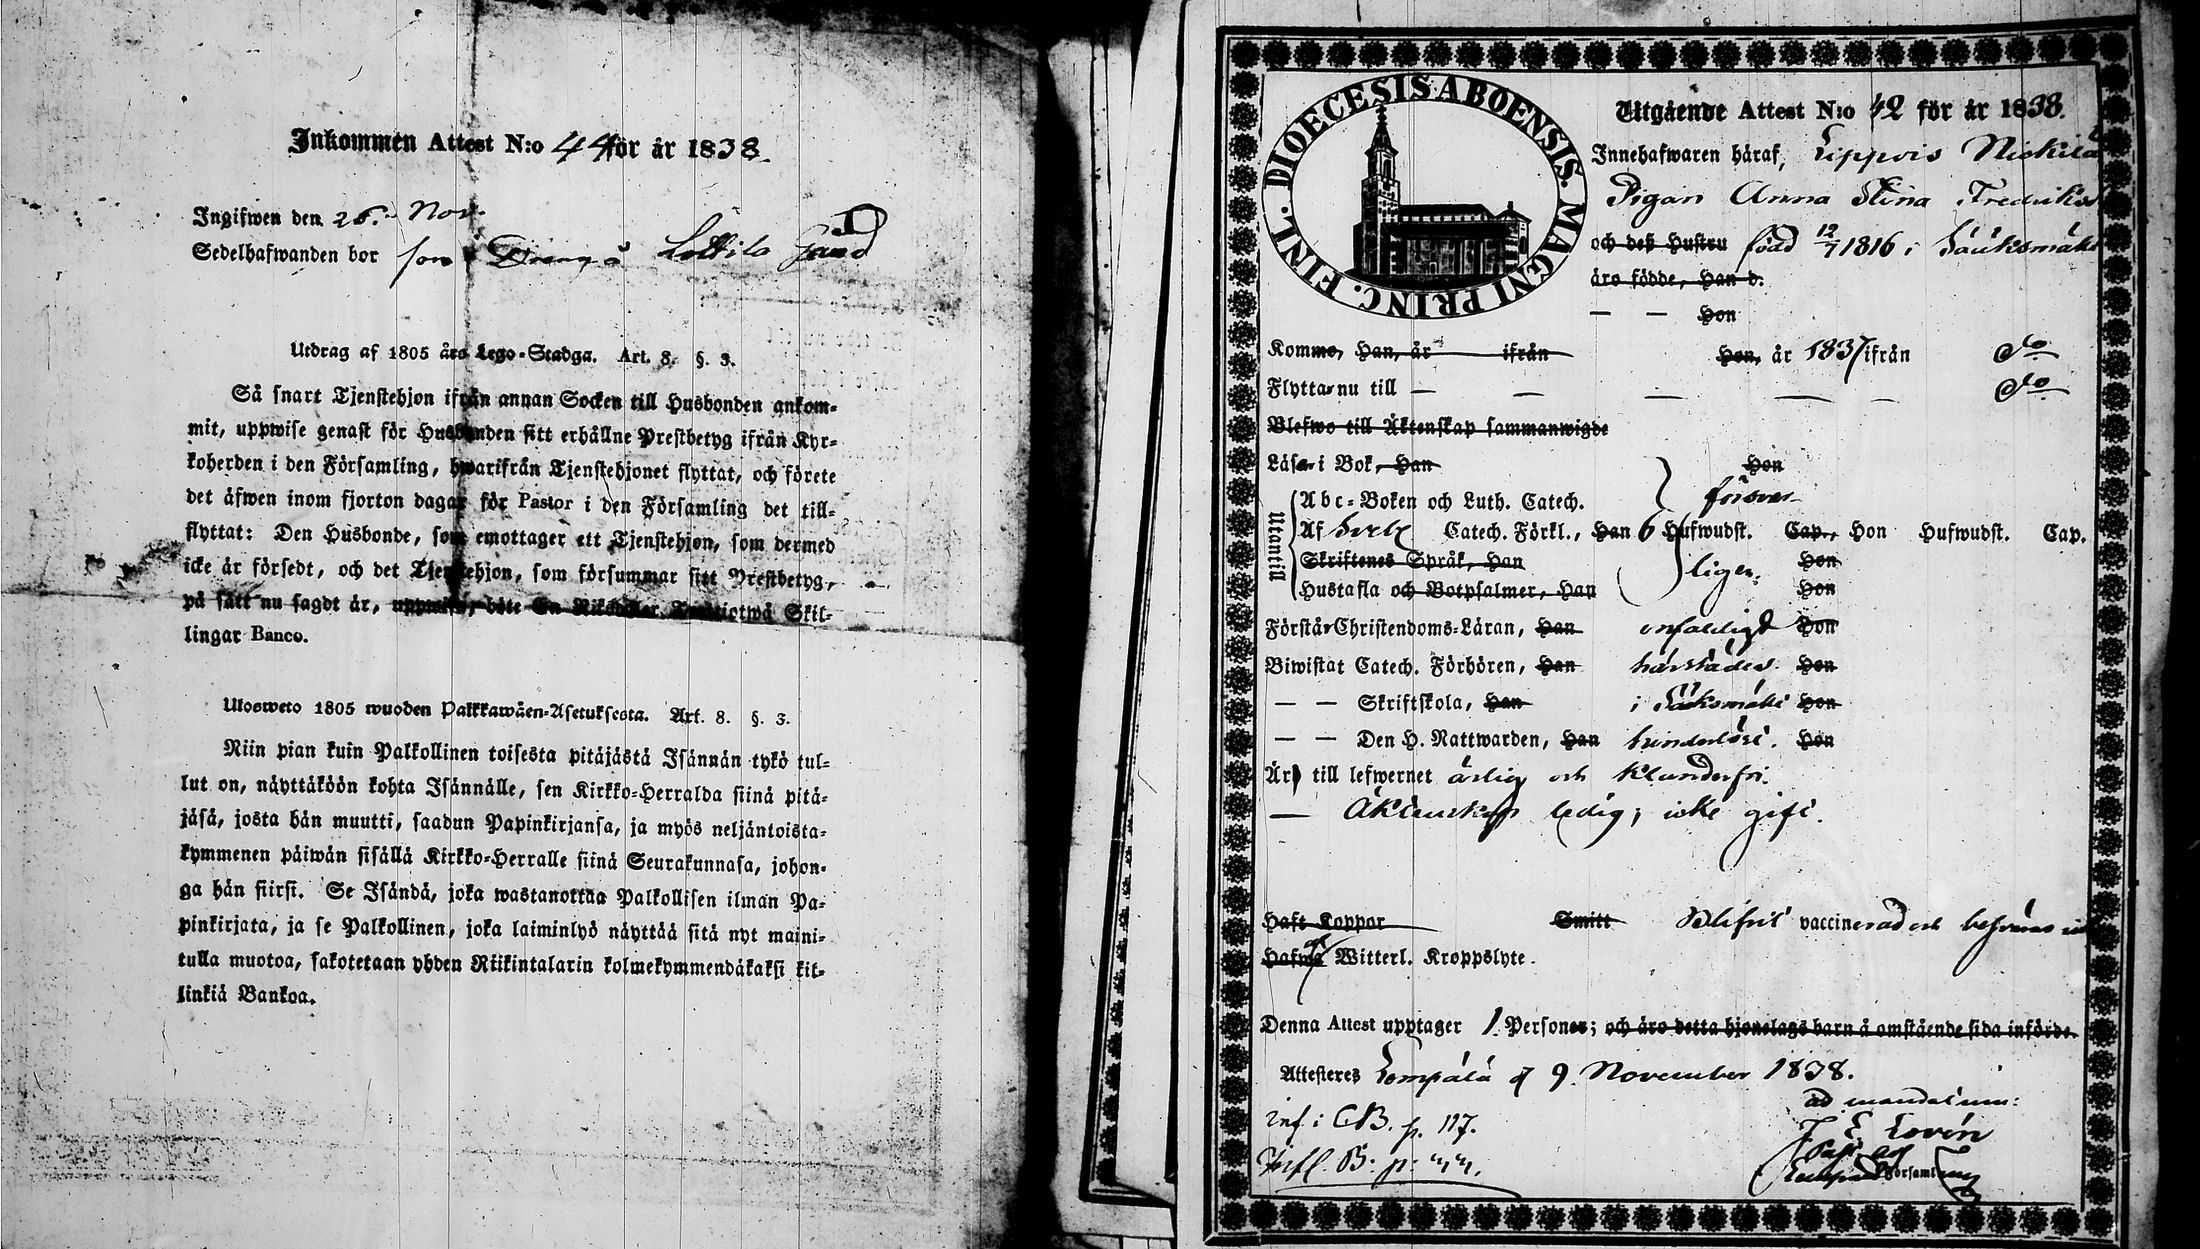 Inkommen Attest N:o 44 för år 1838.
Ingifwen den 26. Nov.
Sedelhafwanden bor som Dräng å
Utdrag af 1805 års Lego-Stadga. Art. 8. §. 3.
Så snart Tjenstehjon ifrån annan Socken till Husbonden ankom-
mit, uppwise genast för Husbonden sitt erhållne Prestbetyg ifrån Kyr-
koherden i den Församling, hwarifrån Tjenstehjonet flyttat, och förete
det äfwen inom fjorton dagar för Pastor i den Församling det till-
flyttat: Den Husbonde, som emottager ett Tjenstehjon, som dermed
icke är försedt, och det Tjenstehjon, som försummar sitt Prestbetyg,
på sätt nu sagdt är, uppwisa, böte En Riksdaler Trettiotwå Skil-
lingar Banco.
Ulosweto 1805 wuoden Palkkawäen-Asetuksesta. Art. 8. §. 3.
Niin pian kuin Palkollinen toisesta pitäjästä Isännän tykö tul-
lut on, näyttäköön kohta Isännälle, sen Kirkko-Herralda siinä pitä-
jäsä, josta hän muutti, saadun Papinkirjansa, ja myös neljäntoista-
kymmenen päiwän sisällä Kirkko-Herralle siinä Seurakunnasa, johon-
ga hän siirsi. Se Isändä, joka wastanottaa Palkollisen ilman Pa-
pinkirjata, ja se Palkollinen, joka laiminlyö näyttää sitä nyt maini-
tulla muotoa, sakotetaan yhden Riikintalarin kolmekymmendäkaksi kil-
linkiä Bankoa.
DIOECESIS ABOENSIS. MAGNI PRINC. FINL.
Utgående Attest N:o 42 för år 1838.
Innehafwaren häraf, Lippois Nickilä
Pigan Anna Stina Fredriksd
och deß Hustru född 12/7 1816 i Sääksmäki
äro födde, Han d.
— — Hon
Kommo, Han, år ifrån Hon, år 1837 ifrån do
Flytta nu till — — — — — do
Blefwo till Äktenskap sammanwigde
Läsa i Bok, Han Hon
Utantill
Abc-Boken och Luth. Catech. försvar-
Af Sveb. Catech. Förkl., Han 6 Hufwudst. Cap., Hon Hufwudst. Cap.
Skriftenes Språk, Han ligen. Hon
Hustafla och Botpsalmer, Han Hon
Förstår Christendoms-Läran, Han enfaldigt Hon
Biwistat Catech. Förhören, Han härstädes. Hon
— — Skriftskola, Han i Sääksmäki Hon
— — Den H. Nattwarden, Han hinderlöst. Hon
Är till lefwernet ärlig och klanderfri.
— Äktenskap ledig; icke gift.
Haft Koppor Smitt Blifvit vaccinerad och besväras ick
Hafwa af Witterl. Kroppslyte.
Denna Attest upptager 1 Personer; och äro detta hjonelags barn å omstående sida införde.
Attesteres Lempälä d 9. November 1838.
ad mandatum:
inf. i CB. p. 117.
J E Lovén
Infl. B. p. 44.
Past. adj
Lempälä Församling